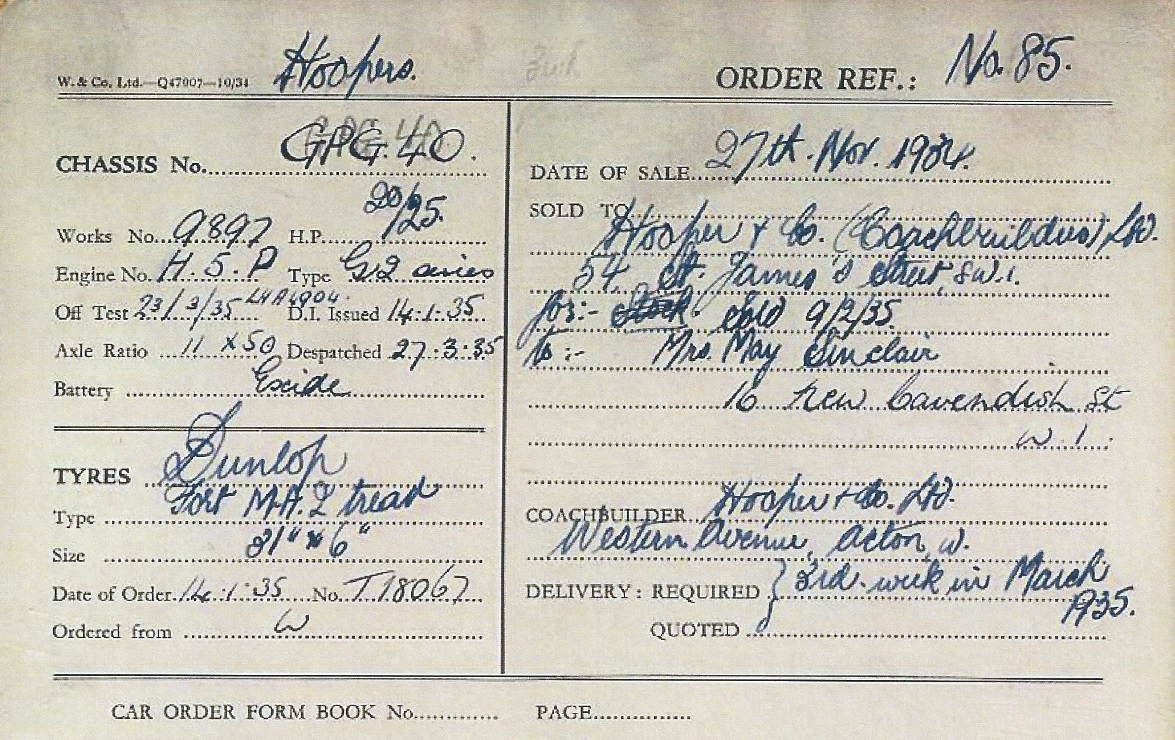 W. & Co. Ltd.—Q47007—10/34 Hoopers. ORDER REF.: No. 85.
CHASSIS No. GPG. 40.
Works No. 9897 H.P. 20/25.
Engine No. H.5.P Type G2 series
Off Test 23/3/35 D.I. Issued 14.1.35
Axle Ratio 11 x 50 Despatched 27.3.35
Battery Exide
TYRES Dunlop
Type Fort M.A.2 tread
Size "x 6"
Date of Order 14.1.35 No. T18067
Ordered from W
DATE OF SALE 27th. Nov. 1934.
SOLD TO
Hooper & Co. (Coachbuilders) Ltd.
54, St. James's Street, S.W.1.
for:- Stock. Sold 9/2/35.
to:- Mrs. May Sinclair
16 New Cavendish St
W.1.
COACHBUILDER Hooper & Co. Ltd.
Western Avenue, Acton, W.
DELIVERY: REQUIRED } 3rd. week in March
1935.
QUOTED
CAR ORDER FORM BOOK No. PAGE